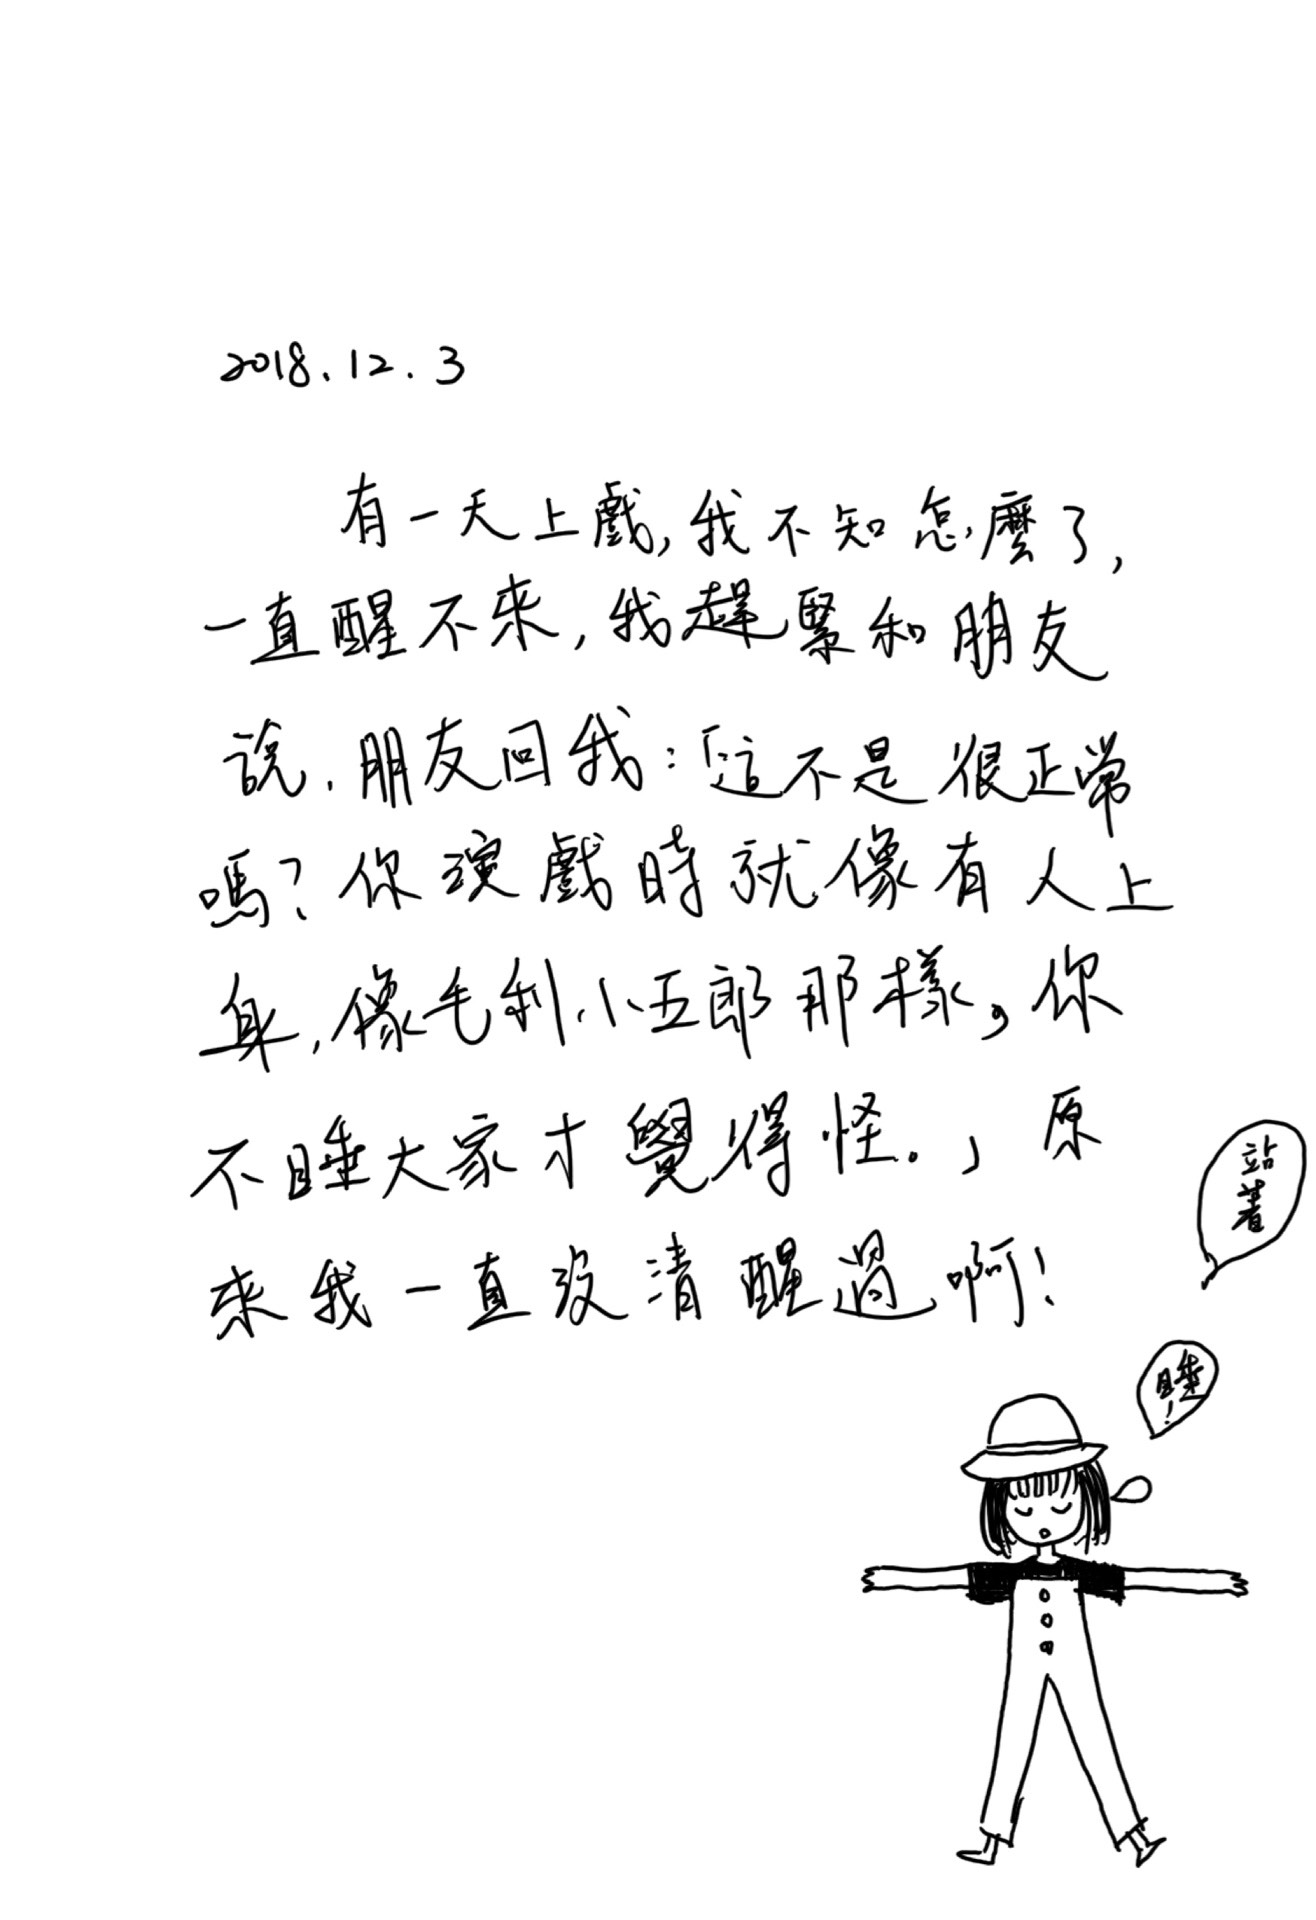 2018.12.3
有一天上戲,我不知怎麼了,
一直醒不來,我趕緊和朋友
說.朋友回我:「這不是很正常
嗎?你演戲時就像有人上
身,像毛利小五郎那樣,你
不睡大家才覺得怪。」原
來我一直沒清醒過啊!
站著
睡!